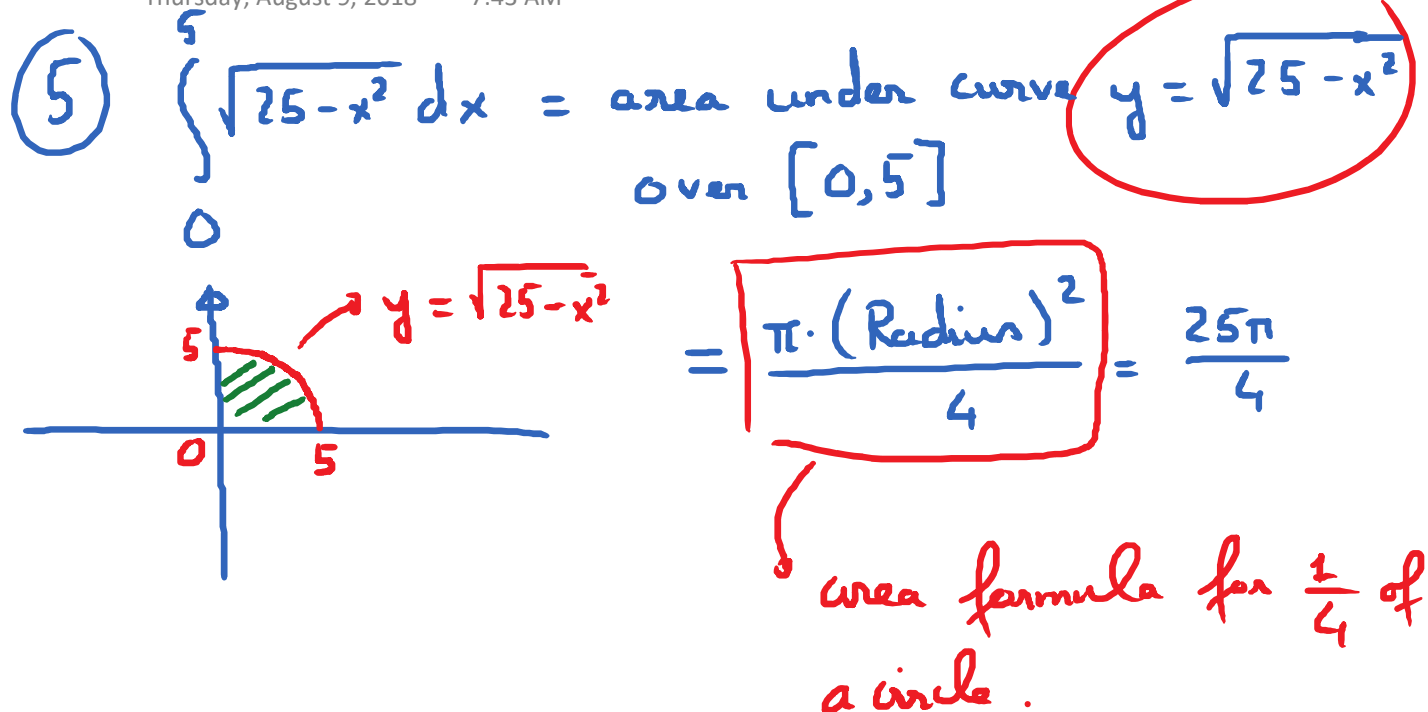 Thursday, August 9, 2018 7:43 AM
⑤ ∫₀⁵ √(25-x²) dx = area under curve y = √(25-x²)
over [0,5]
y = √(25-x²)
= π·(Radius)²/4 = 25π/4
5
0 5
area formula for 1/4 of
a circle.